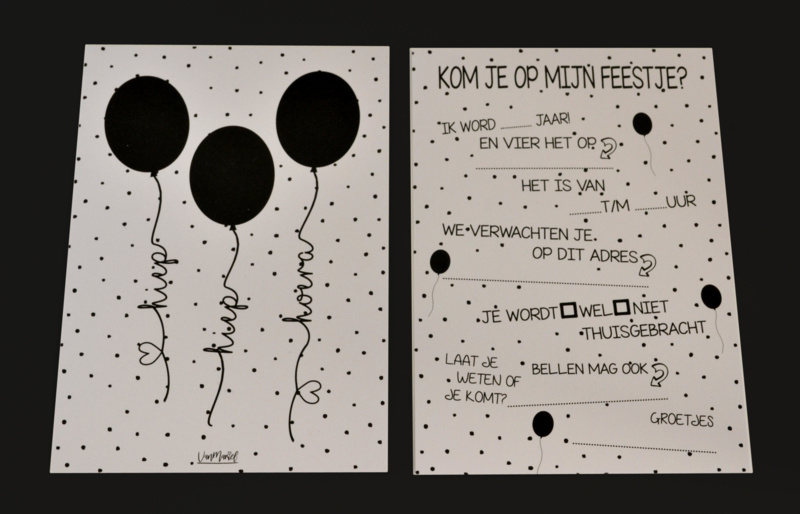 hiep
hiep
hoera
VanMariel
KOM JE OP MIJN FEESTJE?
IK WORD ........ JAAR!
EN VIER HET OP
HET IS VAN
........ T/M ........ UUR
WE VERWACHTEN JE
OP DIT ADRES
JE WORDT WEL NIET
THUISGEBRACHT
LAAT JE
WETEN OF
JE KOMT?
BELLEN MAG OOK
GROETJES